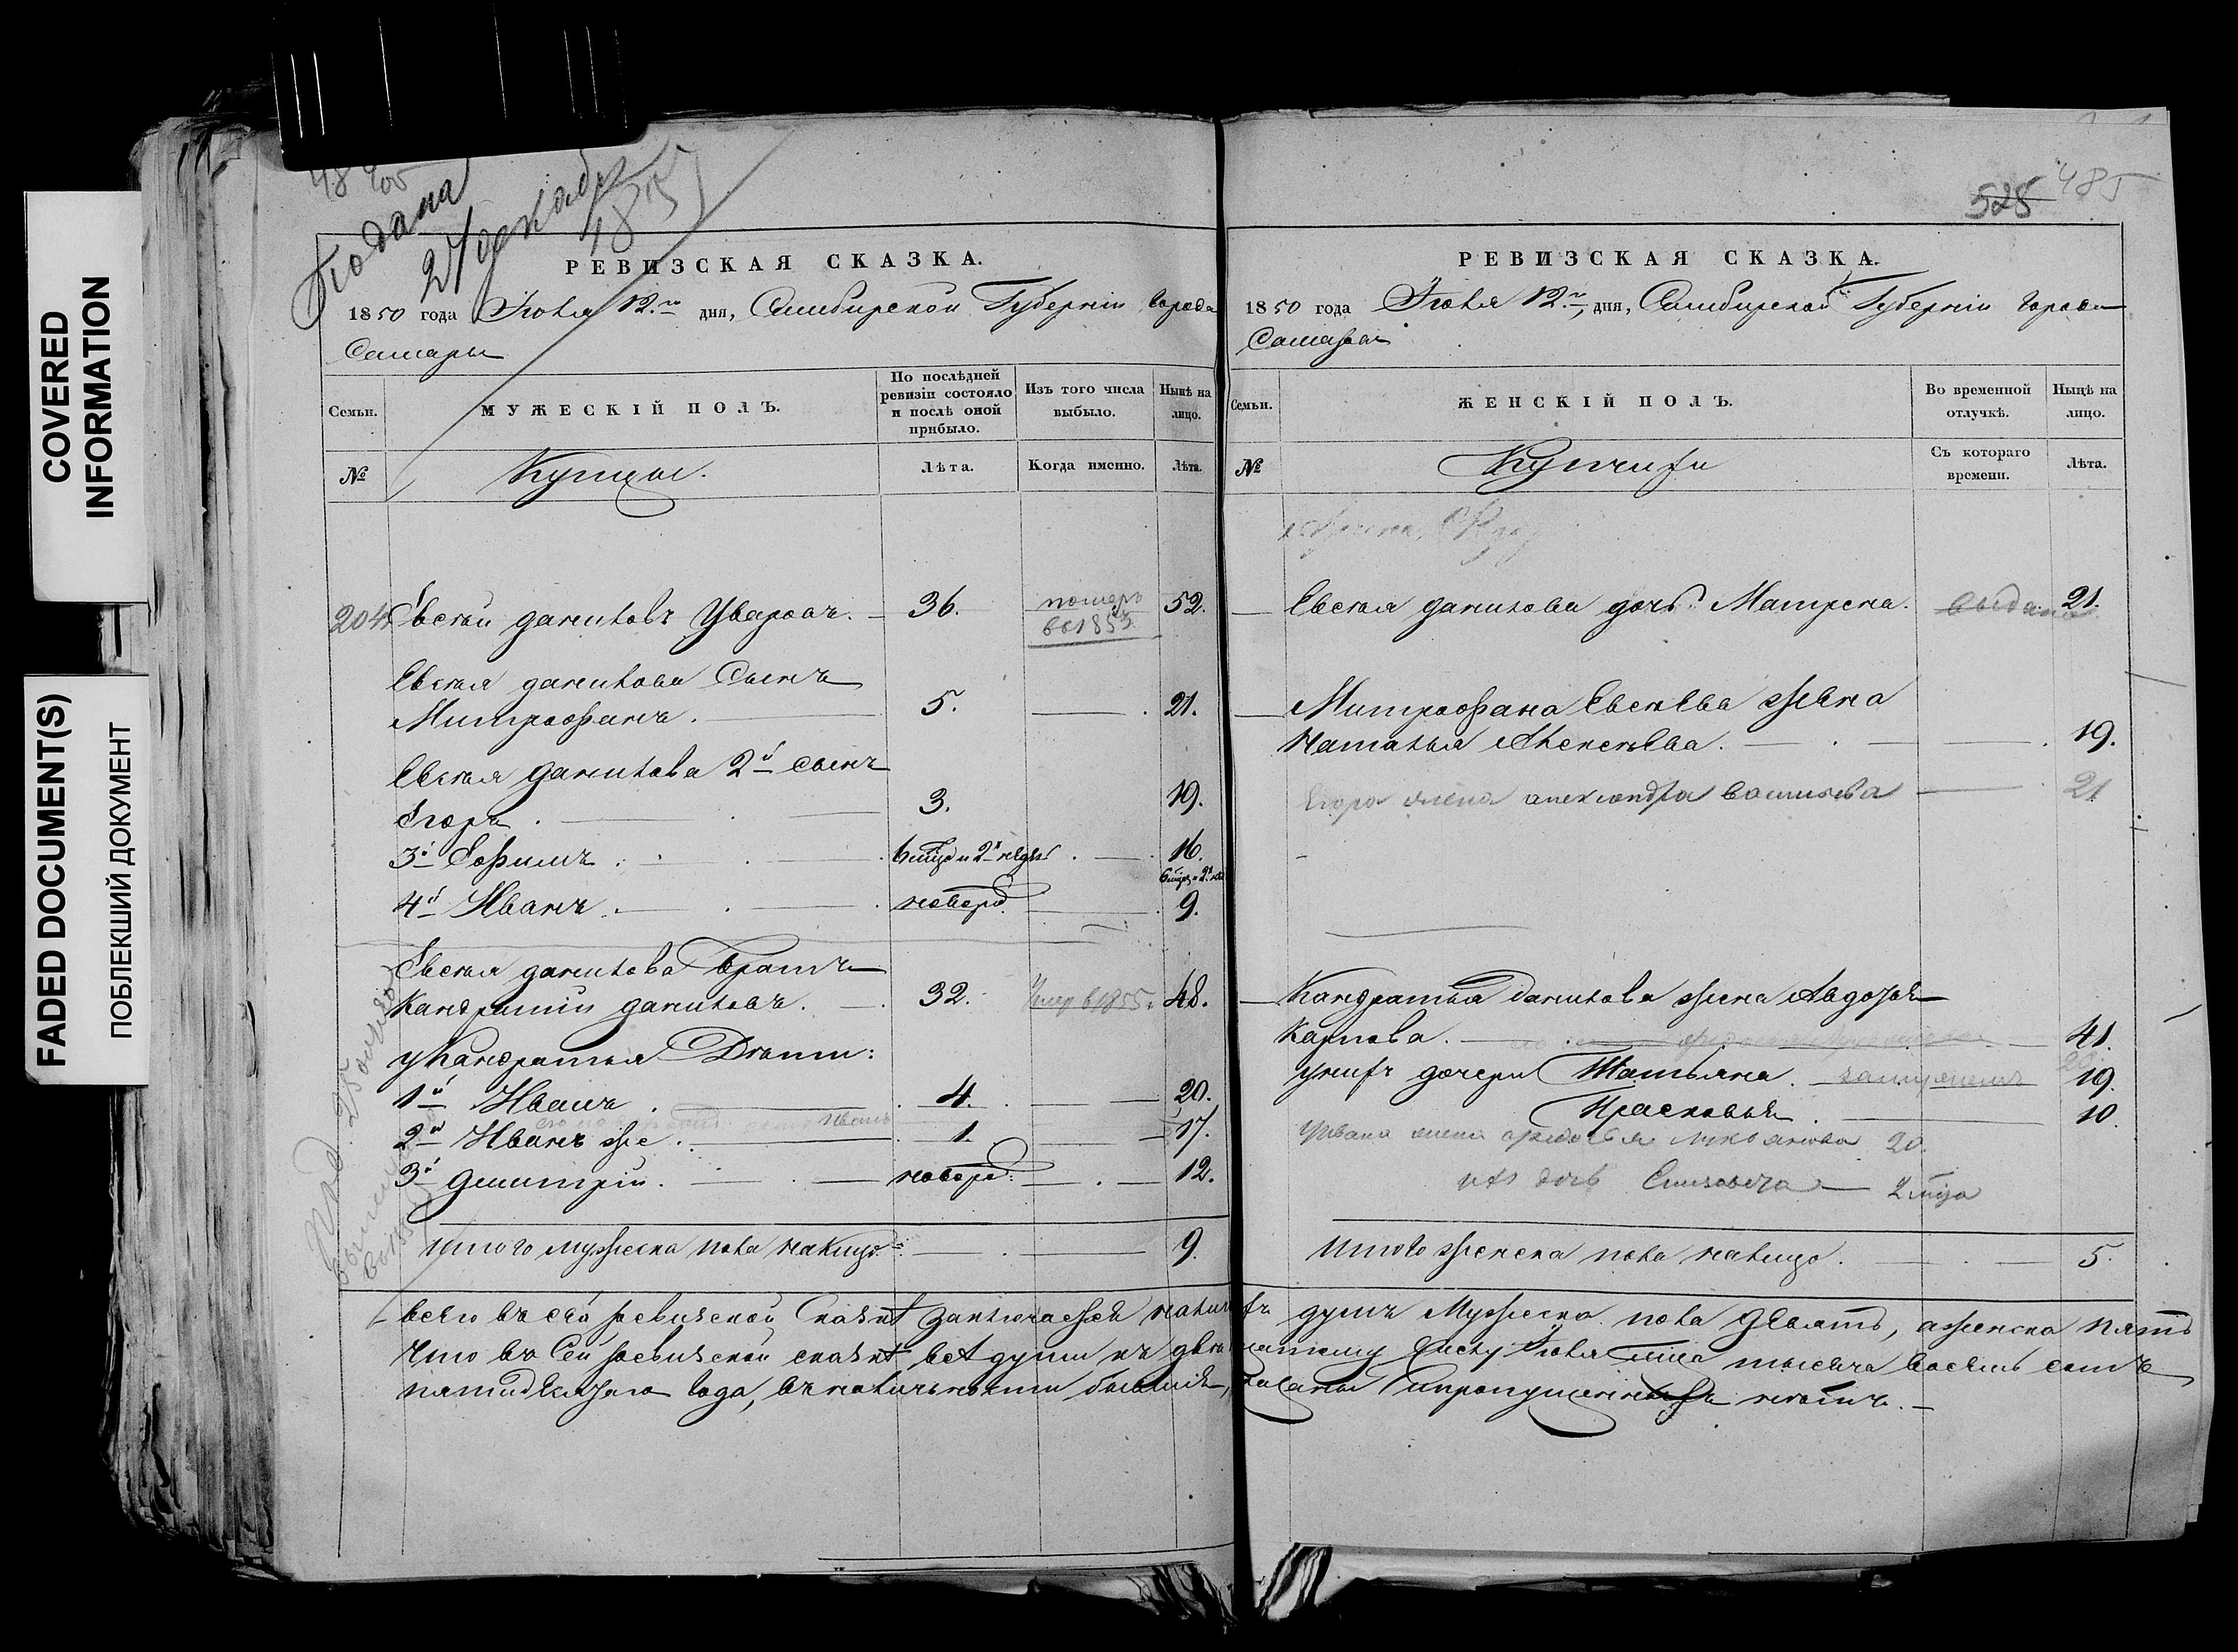 COVERED
INFORMATION
FADED DOCUMENT(S)
ПОБЛЕКШИЙ ДОКУМЕНТ
Подана
27 декабря
485
528 485
РЕВИЗСКАЯ СКАЗКА.
1850 года Июля 12.го дня, Симбирской Губернiи города
Самары
Семьи.
МУЖЕСКIЙ ПОЛЪ.
По послѣдней ревизiи состояло и послѣ оной прибыло.
Изъ того числа выбыло.
Нынѣ на лицо.
№
Купцы.
Лѣта.
Когда именно.
Лѣта.
204. Евсей даниловъ Уваровъ. 36. померъ в 1853 52.
Евсея данилова Сынъ
Митрофанъ. 5. 21.
Евсея данилова 2й сынъ
Егоръ. 3. 19.
3й Ефимъ. 6 мцо и 2х недѣл 16.
4й Иванъ. новорд. 9.
Евсея данилова братъ
Кандратiй даниловъ. 32. Умер в 1855 г. 48.
у Кандратья Дѣти:
1й Иванъ. 4. 20.
2й Иванъ же. 1. 17.
3й дмитрiй. новорд: 12.
итого мужеска пола налицо 9.
РЕВИЗСКАЯ СКАЗКА.
1850 года Июля 12.го дня, Симбирской Губернiи города
Самары
Семьи.
ЖЕНСКIЙ ПОЛЪ.
Во временной отлучкѣ.
Нынѣ на лицо.
№
Купчихи
Съ котораго времени.
Лѣта.
Евсея данилова дочь Матрена. выдана 21.
Митрофана Евсеева жена
Наталья Алексеева. 19.
Егора жена александра васильева 21
Кандратья данилова жена Авдотья
Карпова. 41.
у них дочери Татьяна. замужемъ 19.
Прасковья. 10.
у Ивана жена 20.
их дочь Елизавета 2 мца
итого женска пола налицо. 5.
всего въ сей ревизской сказкѣ заключается наличныхъ душъ мужеска пола девять, а женска пять
Что въ Сей ревизской сказкѣ всѣ души къ двенатцатому числу Июля мца тысеча восемь сотъ
пятидесятаго года, въ наличьности бывшiе, показаны и пропущенныхъ нетъ.